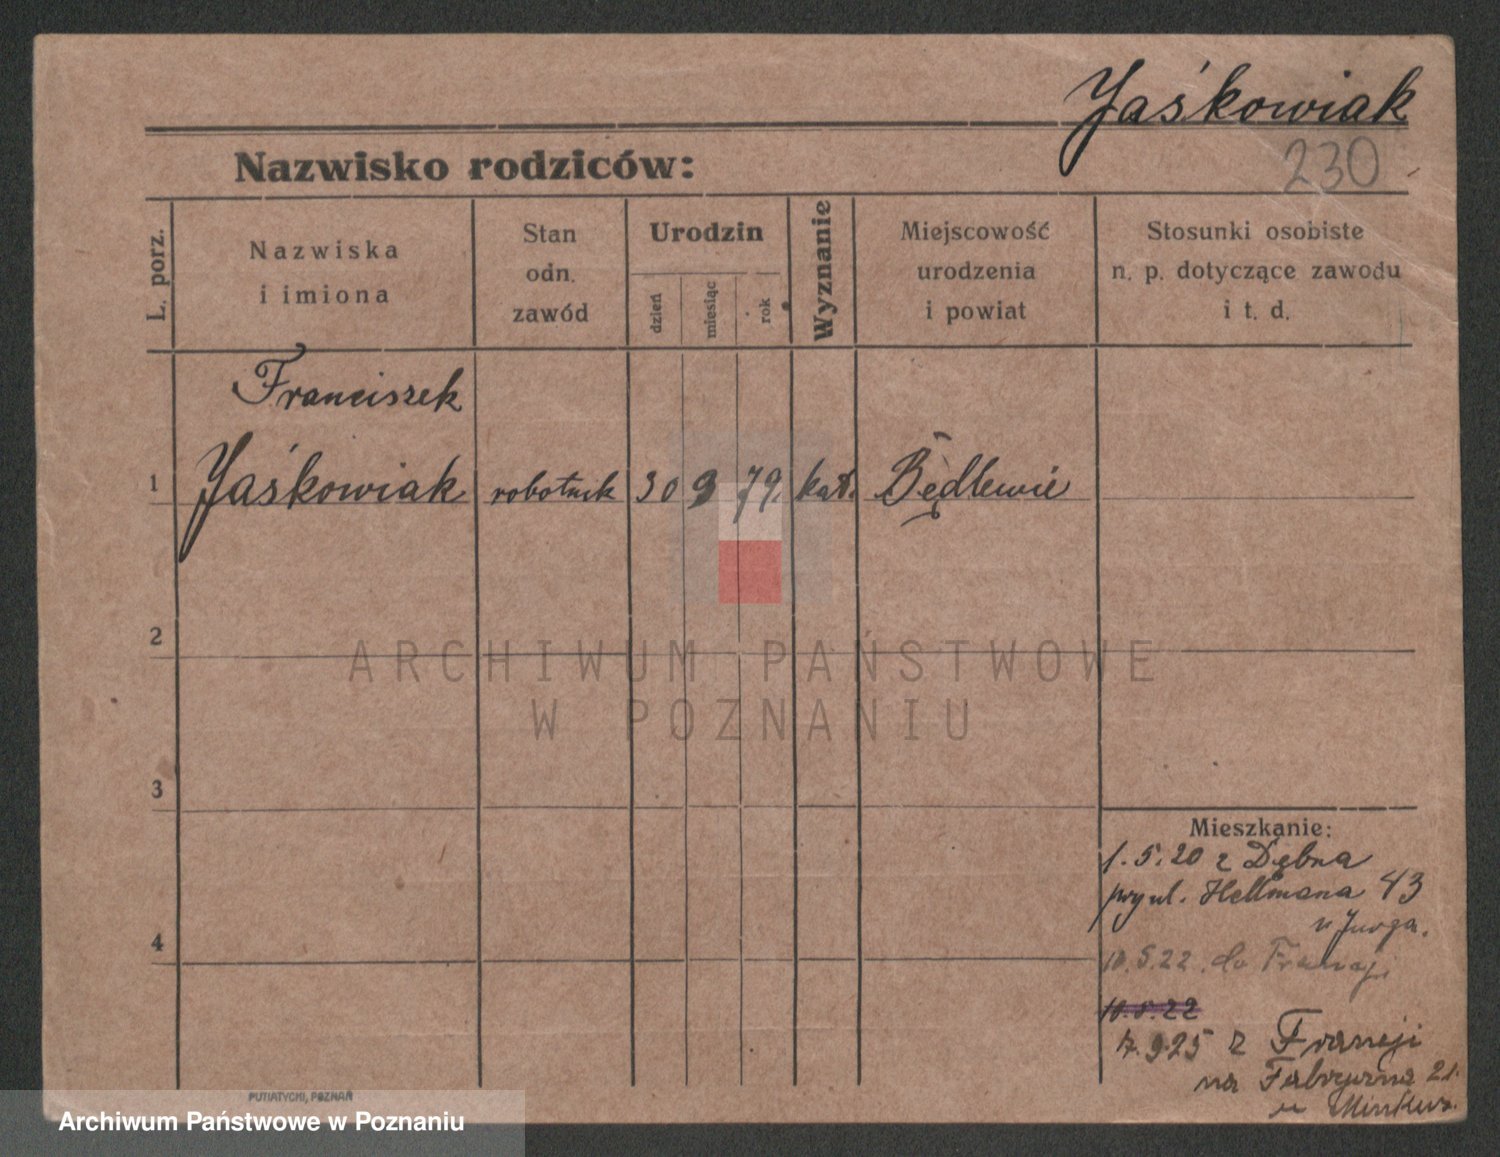 Jaśkowiak
230
Nazwisko rodziców:
L. porz.
Nazwiska
i imiona
Stan
odn.
zawód
Urodzin
dzień
miesiąc
rok
Wyznanie
Miejscowość
urodzenia
i powiat
Stosunki osobiste
n. p. dotyczące zawodu
i t. d.
Franciszek
1 Jaśkowiak robotnik 30 9 79. kat. Będlewie
2
3
4
ARCHIWUM PAŃSTWOWE
W POZNANIU
Mieszkanie:
1.5.20 z Dębna
przy ul. Hettmana 43
10.5.22. do Francji
10.5.22
7.9.25 z Francji
na Fabryczna 21.
PUTIATYCKI, POZNAŃ
Archiwum Państwowe w Poznaniu